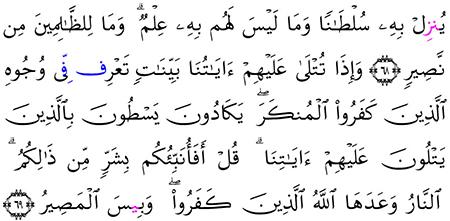 يُنزِلْ بِهِۦ سُلْطَٰنٗا وَمَا لَيْسَ لَهُم بِهِۦ عِلْمٞۗ وَمَا لِلظَّٰلِمِينَ مِن
نَّصِيرٖ ٦٨ وَإِذَا تُتْلَىٰ عَلَيْهِمْ ءَايَٰتُنَا بَيِّنَٰتٖ تَعْرِف فِّى وُجُوهِ
الَّذِينَ كَفَرُواْ الْمُنكَرَۖ يَكَادُونَ يَسْطُونَ بِالَّذِينَ
يَتْلُونَ عَلَيْهِمْ ءَايَٰتِنَاۗ قُلْ أَفَأُنَبِّئُكُم بِشَرّٖ مِّن ذَٰلِكُمُۗ
النَّارُ وَعَدَهَا اللَّهُ الَّذِينَ كَفَرُواْۖ وَبِيسَ الْمَصِيرُ ٦٩